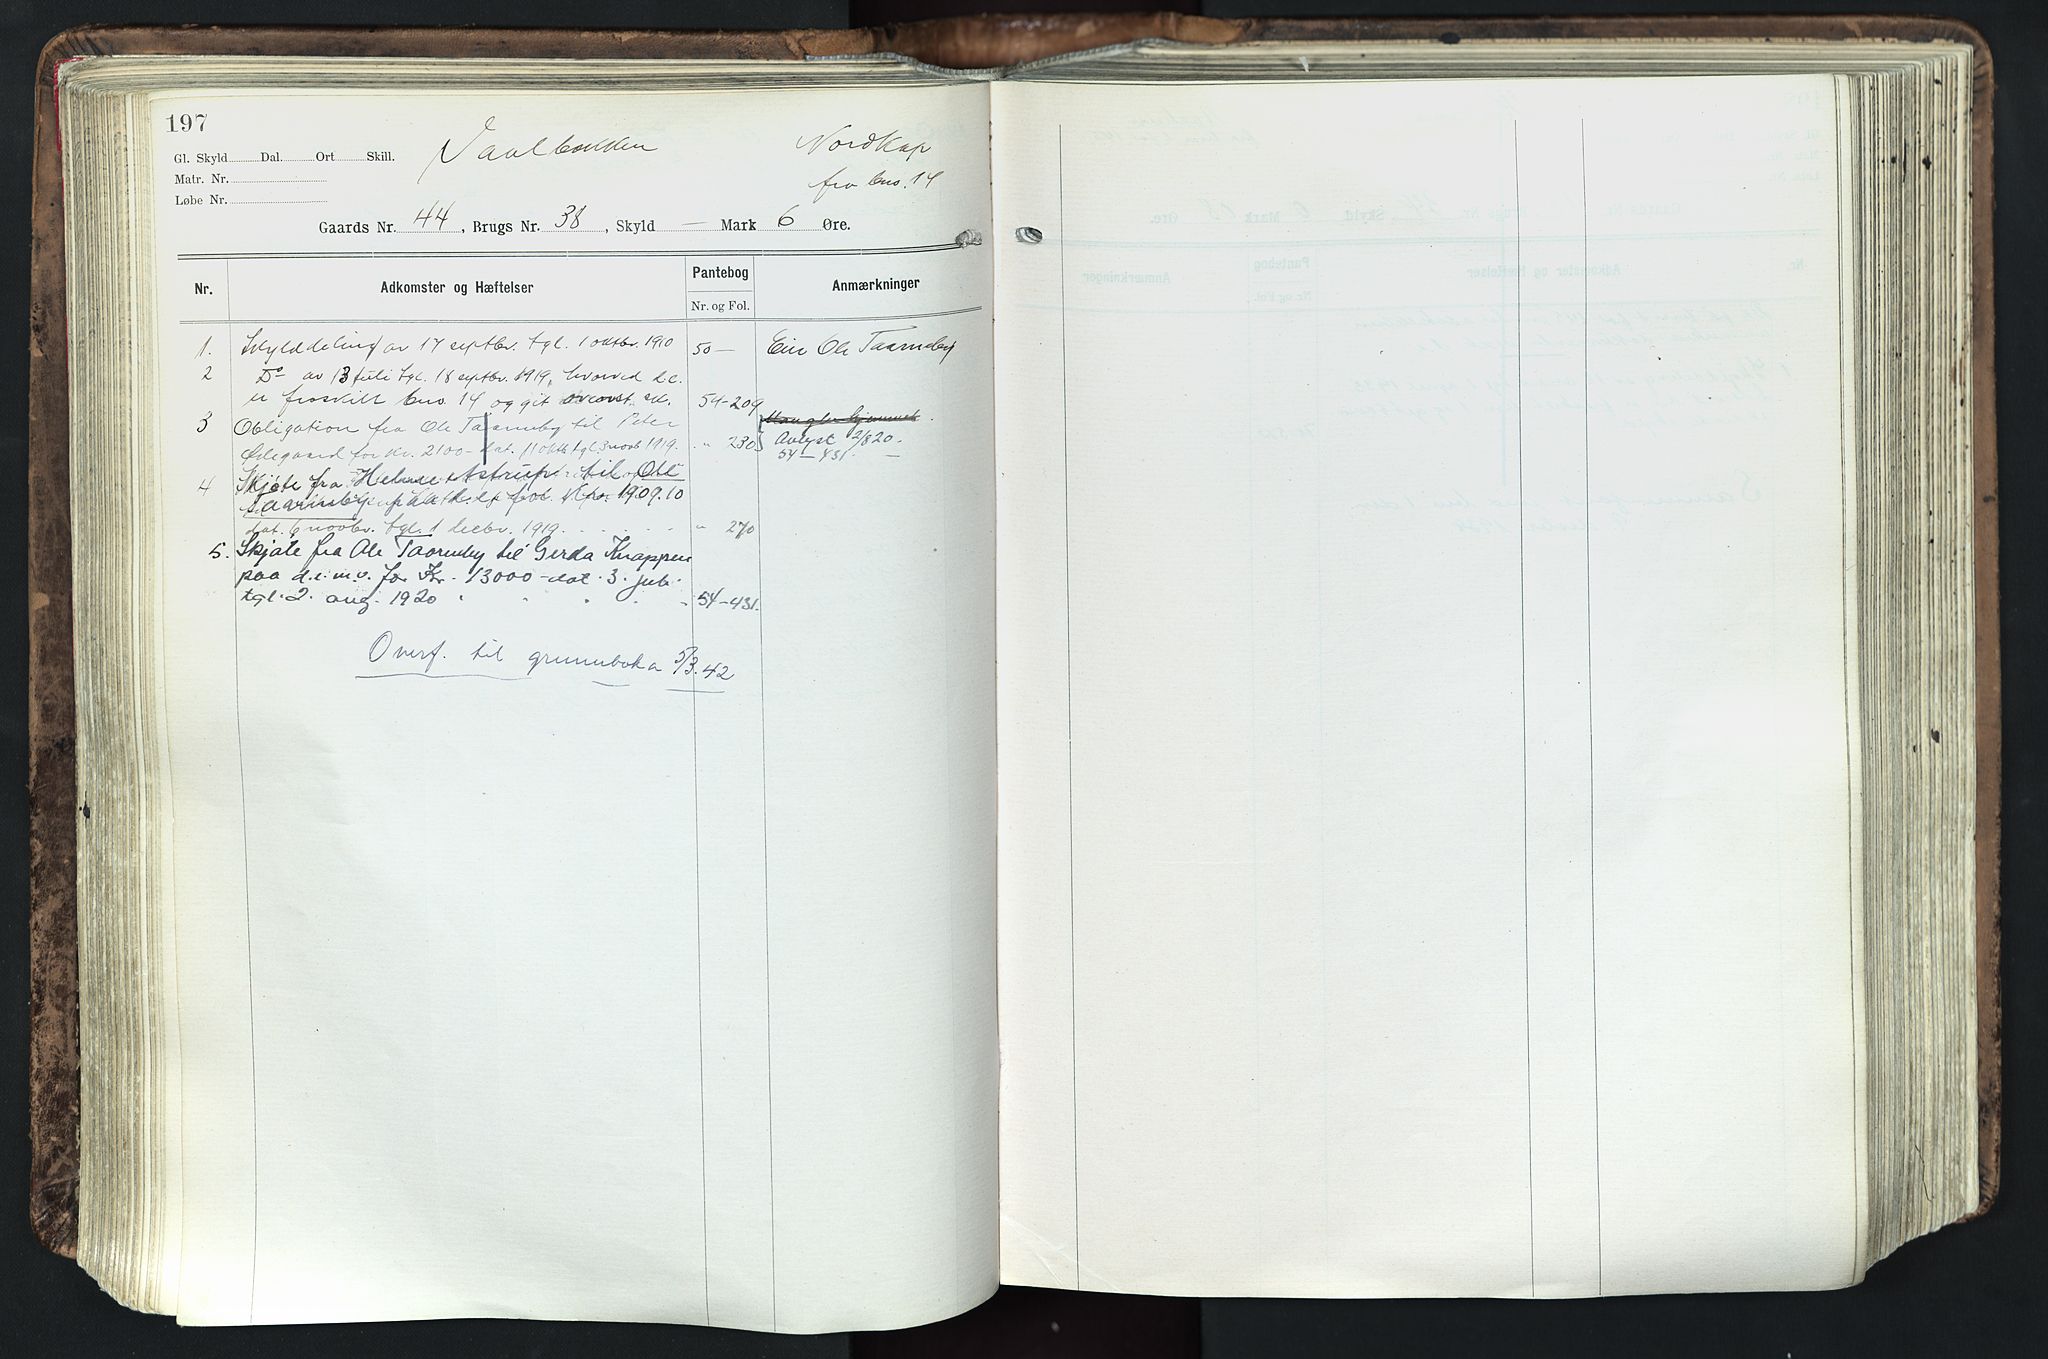 197
Vaalbakken Nordkap
fra bno. 14
Gl. Skyld Dal. Ort Skill.
Matr. Nr.
Løbe Nr.
Gaards Nr. 44, Brugs Nr. 38, Skyld — Mark 6 Øre.
Nr. Adkomster og Hæftelser Pantebog Anmærkninger
Nr. og Fol.
1. Skylddeling av 17 septbr. tgl. 1 oktbr. 1910 50 — Eier Ole Taarneby
2 Do av 13 juli tgl. 18 septbr. 1919, hvorved d.e.
er fraskilt bno. 14 og git 54-209
3 Obligation fra Ole Taarneby til Peter
Ødegaard for kr. 2100- dat. 11 oktb tgl. 3 novb 1919. " 230 Avlyst 2/8 20.
54-431.
4 Skjøte fra Helene Astrup til Ole
Taarneby paa for Kr. 1909.10
dat. 6 novbr. tgl. 1 decbr. 1919 " 270
5. Skjøte fra Ole Taarneby til Gerda Knappen
paa d.e.m.v. for Kr. 13000- dat. 3. juli
tgl. 2. aug. 1920 54-431.
Overf. til grunnboka 5/3.42